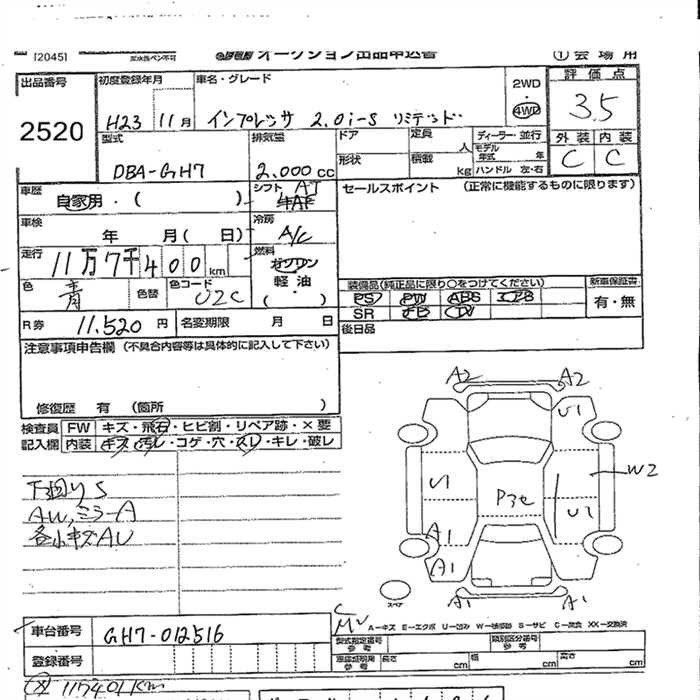 120451
オークション出品申込書
① 会場用
出品番号
2520
初度登録年月
H23 11 月
車名・グレード
インプレッサ 2.0i-S リミテッド
2WD
・
4WD
評価点
3.5
外装 内装
C C
型式
DBA-GH7
排気量
2.000 cc
ドア
定員 人
形状
積載 kg
ディーラー・並行
モデル年式 年
ハンドル 左・右
車歴
自家用・( )
シフト AT
セールスポイント (正常に機能するものに限ります)
車検
年 月( 日)
冷房
A/C
走行
11万7千400 km
燃料
ガソリン
軽油
・
( )
色
青
色替
色コード
02C
装備品(純正品に限り○をつけてください)
PS PW ABS
SR
新車保証書
有・無
R券 11.520 円
名変期限 月 日
後日品
注意事項申告欄 (不具合内容等は具体的に記入して下さい)
修復歴 有 (箇所 )
検査員記入欄
FW キズ・飛石・ヒビ割・リペア跡・×要
内装 キズ・汚レ・コゲ・穴・スレ・キレ・破レ
下回りS
AW,ミラーA
各小キズAU
A2 A2
U1
U1
P3e
W2
U2
A1
A1
A1 A1
スペア
A-キズ E-エクボ U-凹み S-サビ C-腐食 XX-交換済
車台番号
GH7-012516
登録番号
型式指定番号 参考
類別区分番号 参考
長さ cm
幅 cm
高さ cm
117401km